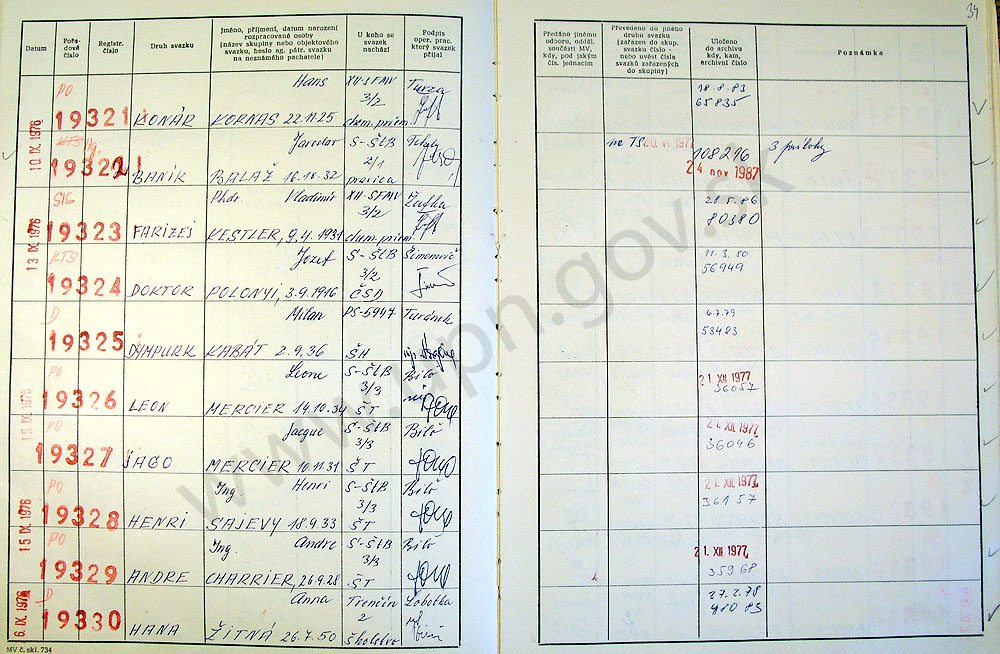 34
Datum
Pořadové číslo
Registr. číslo
Druh svazku
Jméno, příjmení, datum narození
rozpracované osoby
(název skupiny nebo objektového
svazku, heslo ag. pátr. svazku
na neznámého pachatele)
U koho se
svazek
nachází
Podpis
oper. prac.
který svazek
přijal
Předáno jinému
odboru, odděl.
součásti MV,
kdy, pod jakým
čís. jednacím
Převedeno do jiného
druhu svazku
(zařazen do skup.
svazku číslo -
nebo uvést čísla
svazků zařazených
do skupiny)
Uloženo
do archivu
kdy, kam,
archivní číslo
Poznámka
PO Hans XII-SFMV Turza 18.8.83
19321 KONÁR KORNAS 22.11.25 3/2 chem.priem 65835
10. IX. 1976
KTS Jaroslav S-ŠtB na TS 108216 3 prílohy
19322 BANÍK BALÁŽ 16.10.32 2/1 pravica 24 nov 1987
Phdr. Vladimír XII-SFMV 28.5.86
13 IX. 1976 19323 FARIZEJ KESTLER, 9.4.1931 3/2 chem.priem 80380
KTS Jozef S-ŠtB Šimonovič 11.3.80
19324 DOKTOR POLONYI, 3.9.1916 3/2 ČSD 56949
D Milan PS-5947 Turánek 6.7.79
19325 KABÁT 2.9.36 ŠH 53483
PO Leone S-ŠtB Bílo 21. XII 1977
15 IX. 1976 19326 LEON MERCIER 14.10.34 3/3 ŠT 36057
PO Jacque S-ŠtB Bílo 21. XII. 1977
19327 JAGO MERCIER 10.11.31 3/3 ŠT 36046
PO Ing. Henri S-ŠtB Bílo 21. XII 1977
15 IX. 1976 19328 HENRI SAJEVY 18.9.33 3/3 ŠT 36157
PO Ing. André S-ŠtB Bílo 21. XII 1977
19329 ANDRE CHARRIER, 26.9.28 3/3 ŠT 35968
D Anna Trenčín Lobotka 27.2.78
6. IX. 1976 19330 HANA ŽITNÁ 26.7.50 2 školstvo
MV č. skl. 734
www.upn.gov.sk